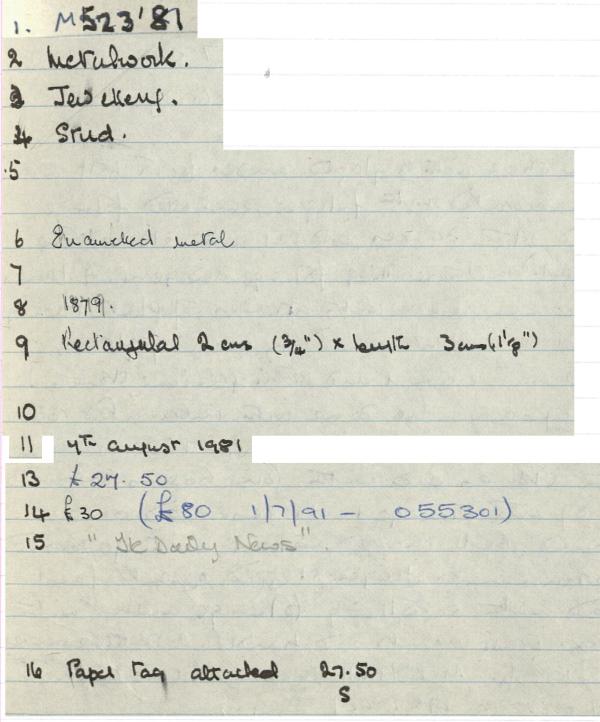 1. M523'81
2 Metalwork.
3 Jewellery.
4 Stud.
5
6 Enamelled metal
7
8 1879.
9 Rectangular 2 cms (3/4") x length 3 cms (1 1/8")
10
11 4th august 1981
13 £27.50
14 £30 (£80 1/7/91 - 055301)
15 "The Daily News".
16 Paper Tag attached 27.50
S